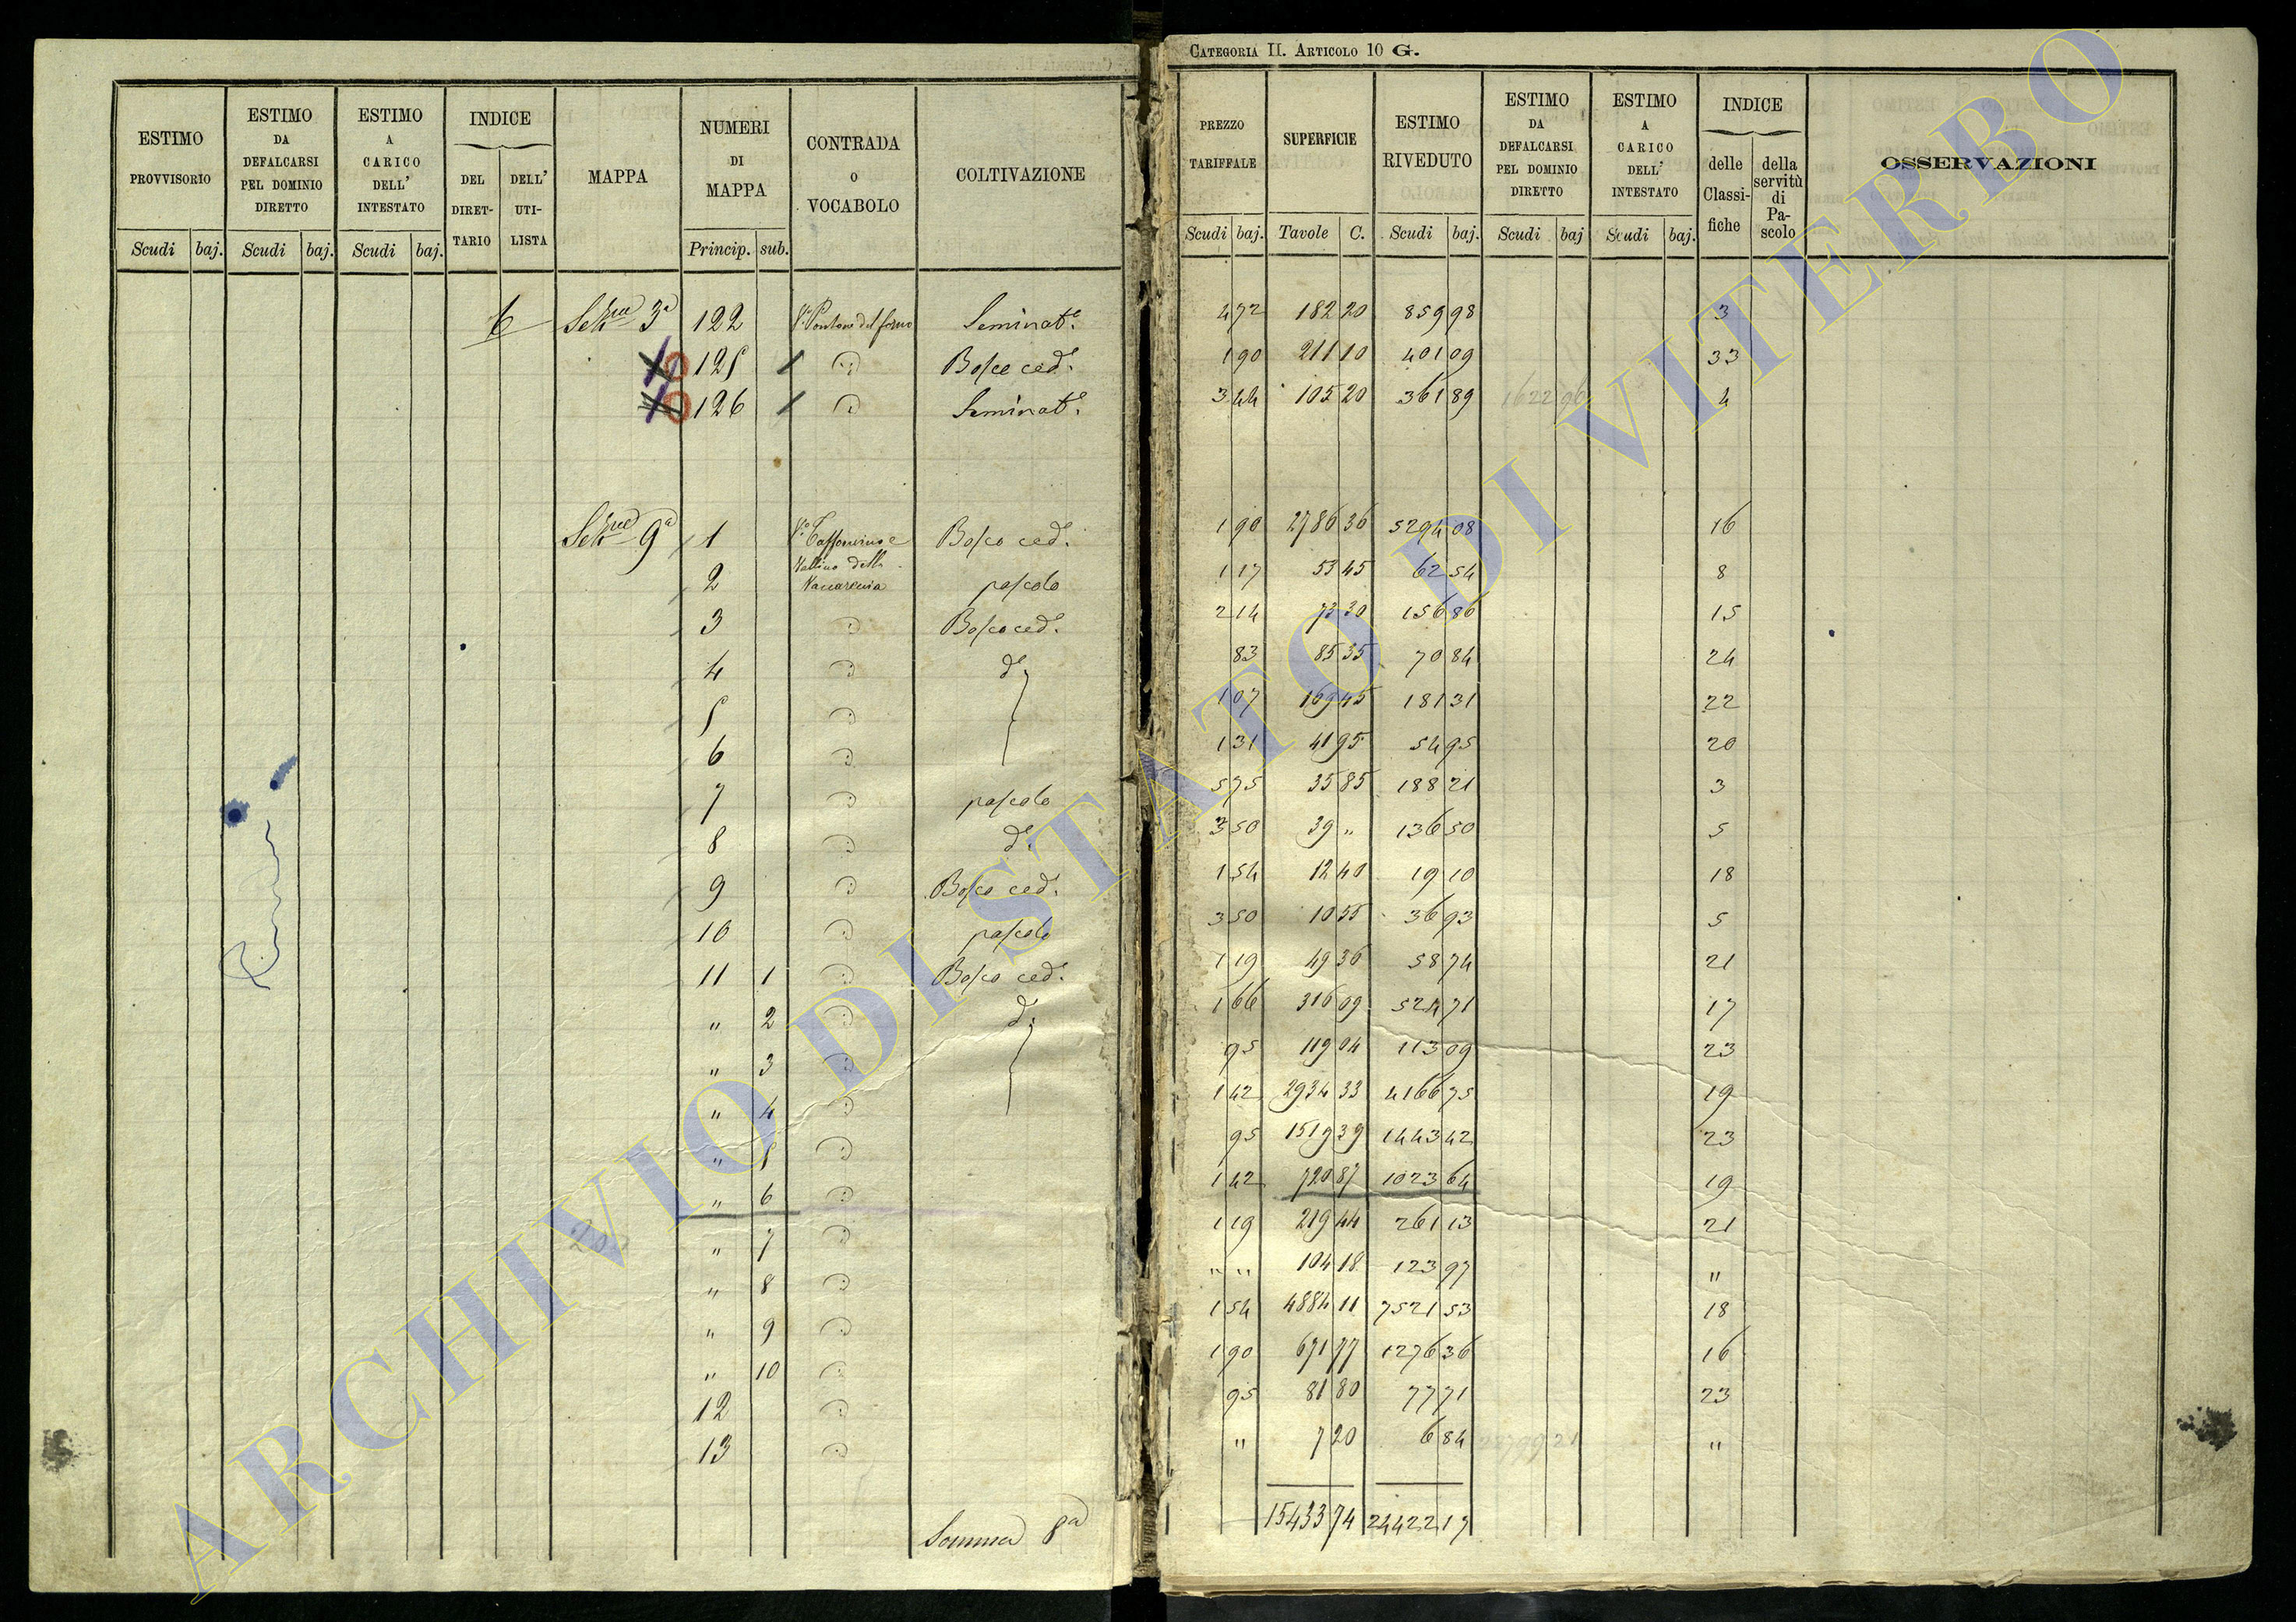 CATEGORIA II. ARTICOLO 10 G.
ESTIMO PROVVISORIO Scudi baj. | ESTIMO DA DEFALCARSI PEL DOMINIO DIRETTO Scudi baj. | ESTIMO A CARICO DELL' INTESTATO Scudi baj. | INDICE DEL DIRETTARIO DELL' UTILISTA | MAPPA | NUMERI DI MAPPA Princip. sub. | CONTRADA O VOCABOLO | COLTIVAZIONE
PREZZO TARIFFALE Scudi baj. | SUPERFICIE Tavole C. | ESTIMO RIVEDUTO Scudi baj. | ESTIMO DA DEFALCARSI PEL DOMINIO DIRETTO Scudi baj | ESTIMO A CARICO DELL' INTESTATO Scudi baj. | INDICE delle Classifiche della servitù di Pascolo | OSSERVAZIONI
6 Sez.ne 3ª 122 del forno Seminat.o 4 72 182 20 859 98 3
10 125 1 Bosco ced.o 1 90 211 10 401 09 33
10 126 1 Seminat.o 3 44 105 20 361 89 1622 96 4
Sez.ne 9ª 1 Bosco ced. 1 90 2786 36 5294 08 16
2 Vallino della pascolo 1 17 53 45 62 54 8
3 Bosco ced.o 2 14 73 30 156 86 15
4 d.o 83 85 35 70 84 24
5 1 07 169 45 181 31 22
6 1 31 41 95 54 95 20
7 pascolo 5 75 35 85 188 21 3
8 d.o 3 50 39 " 136 50 5
9 Bosco ced. 1 54 12 40 19 10 18
10 pascolo 3 50 10 55 36 93 5
11 1 Bosco ced.o 1 19 49 36 58 74 21
" 2 d.o 1 66 316 09 524 71 17
" 3 95 119 04 113 09 23
" 4 1 42 2934 33 4166 75 19
" 5 95 1519 39 1443 42 23
" 6 1 42 720 87 1023 64 19
" 7 1 19 219 44 261 13 21
" 8 " " 104 18 123 97 "
" 9 1 54 4884 11 7521 53 18
" 10 1 90 671 77 1276 36 16
12 95 81 80 77 71 23
13 " 7 20 6 84 "
Somma 8ª 15433 74 24422 17
ARCHIVIO DI STATO DI VITERBO